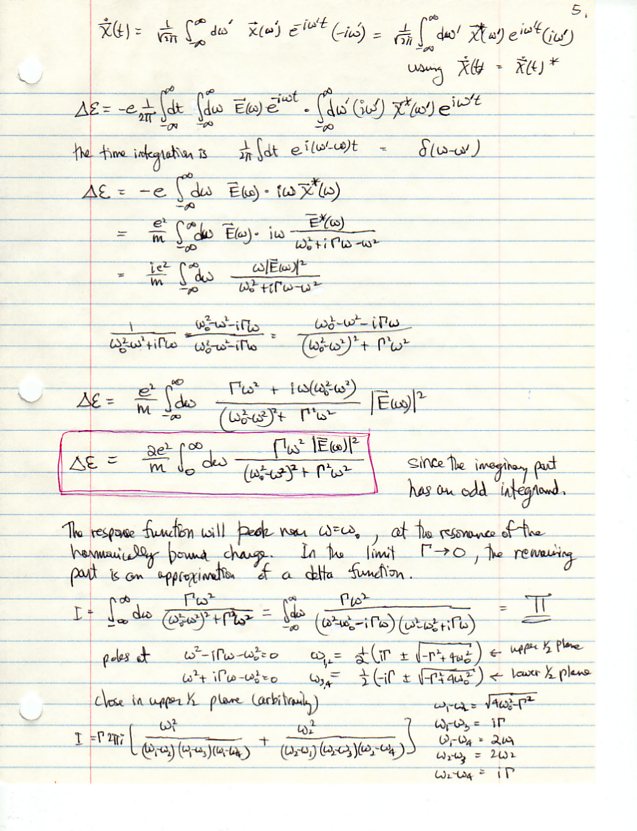 5.
ẋ⃗(t) = 1/√2π ∫_{-∞}^{∞} dω' x⃗(ω') e^{-iω't} (-iω') = 1/√2π ∫_{-∞}^{∞} dω' x⃗*(ω') e^{iω't} (iω')
using ẋ⃗(t) = ẋ⃗(t)*
Δℰ = -e 1/2π ∫_{-∞}^{∞} dt ∫_{-∞}^{∞} dω E⃗(ω) e^{-iωt} · ∫_{-∞}^{∞} dω' (iω') x⃗*(ω') e^{iω't}
the time integration is 1/2π ∫ dt e^{i(ω'-ω)t} = δ(ω-ω')
Δℰ = -e ∫_{-∞}^{∞} dω E⃗(ω) · iω x⃗*(ω)
= e²/m ∫_{-∞}^{∞} dω E⃗(ω) · iω E⃗*(ω)/(ω₀²+iΓω-ω²)
= ie²/m ∫_{-∞}^{∞} dω ω|E⃗(ω)|²/(ω₀²+iΓω-ω²)
1/(ω₀²-ω²+iΓω) (ω₀²-ω²-iΓω)/(ω₀²-ω²-iΓω) = (ω₀²-ω²-iΓω)/((ω₀²-ω²)²+Γ²ω²)
Δℰ = e²/m ∫_{-∞}^{∞} dω (Γω² + iω(ω₀²-ω²))/((ω₀²-ω²)²+Γ²ω²) |E⃗(ω)|²
Δℰ = 2e²/m ∫_0^{∞} dω Γω²|E⃗(ω)|²/((ω₀²-ω²)²+Γ²ω²)
since the imaginary part
has an odd integrand.
The response function will peak near ω=ω₀, at the resonance of the
harmonically bound charge. In the limit Γ→0, the remaining
part is an approximation of a delta function.
I = ∫_{-∞}^{∞} dω Γω²/((ω₀²-ω²)²+Γ²ω²) = ∫_{-∞}^{∞} dω Γω²/((ω²-ω₀²-iΓω)(ω²-ω₀²+iΓω)) = π
poles at ω²-iΓω-ω₀²=0 ω₁,₂ = 1/2 (iΓ ± √(-Γ²+4ω₀²)) ← upper 1/2 plane
ω²+iΓω-ω₀²=0 ω₃,₄ = 1/2 (-iΓ ± √(-Γ²+4ω₀²)) ← lower 1/2 plane
close in upper 1/2 plane (arbitrarily)
I = Γ2πi [ ω₁²/((ω₁-ω₂)(ω₁-ω₃)(ω₁-ω₄)) + ω₂²/((ω₂-ω₁)(ω₂-ω₃)(ω₂-ω₄)) ]
ω₁-ω₂ = √(4ω₀²-Γ²)
ω₁-ω₃ = iΓ
ω₁-ω₄ = 2ω₁
ω₂-ω₃ = 2ω₂
ω₂-ω₄ = iΓ